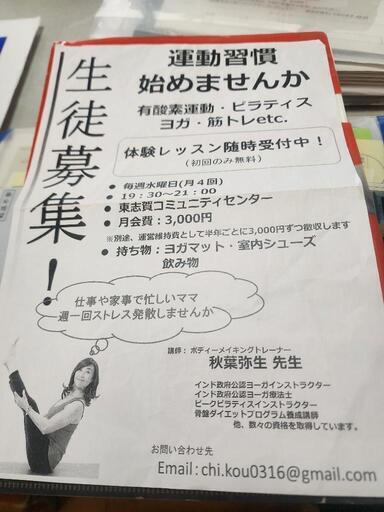 生徒募集！
運動習慣
始めませんか
有酸素運動・ピラティス
ヨガ・筋トレetc.
体験レッスン随時受付中！
（初回のみ無料）
● 毎週水曜日(月４回)
19：30～21：00
● 東志賀コミュニティセンター
● 月会費：3,000円
※別途、運営維持費として半年ごとに3,000円ずつ徴収します
● 持ち物：ヨガマット・室内シューズ
飲み物
仕事や家事で忙しいママ
週一回ストレス発散しませんか
講師：ボディーメイキングトレーナー
秋葉弥生 先生
インド政府公認ヨーガインストラクター
インド政府公認ヨーガ療法士
ピークピラティスインストラクター
骨盤ダイエットプログラム養成講師
他、数々の資格を取得しています。
お問い合わせ先
Email：chi.kou0316@gmail.com